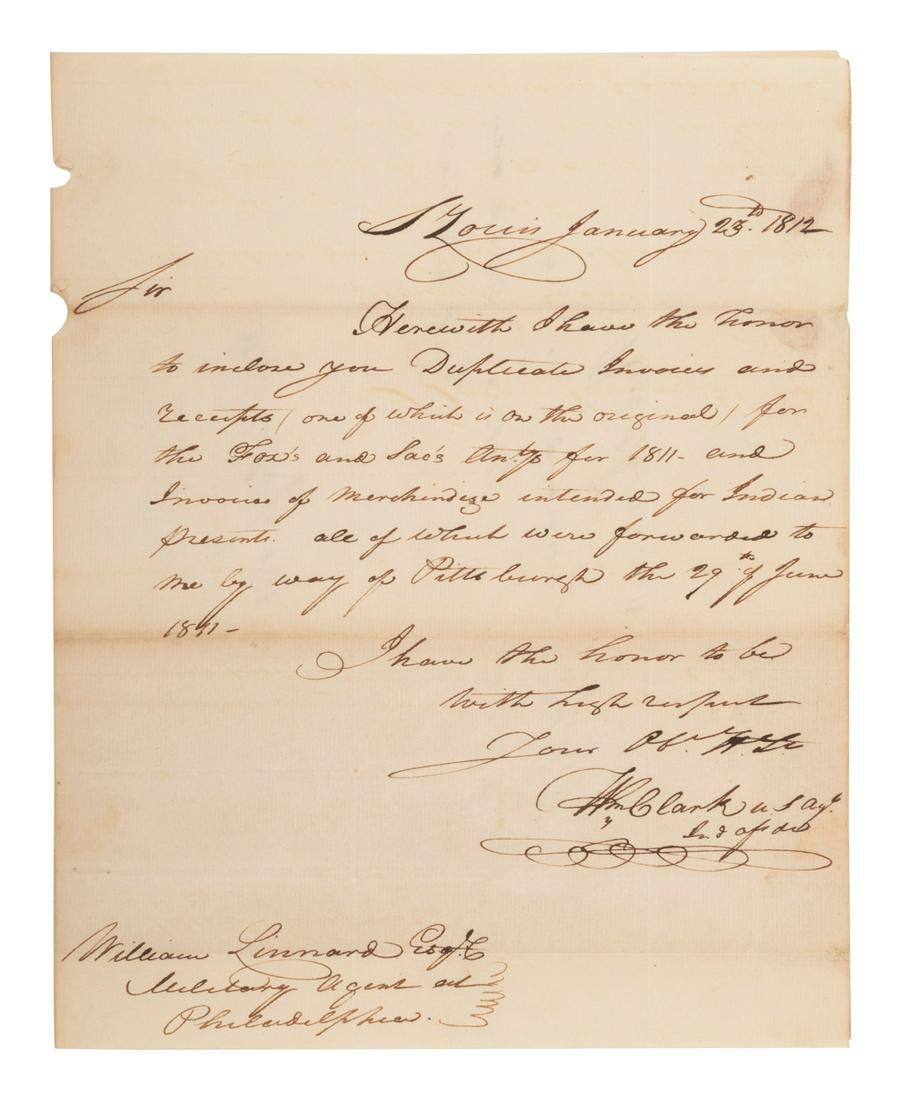 St Louis January 23rd. 1812
Sir
Herewith I have the honor
to inclose you Duplicate Invoices and
receipts / one of which is on the original / for
the Fox's and Sac's for 1811 - and
Invoice of Merchindize intended for Indian
presents. all of which were forwarded to
me by way of Pittsburgh the 29th of June
1811 -
I have the honor to be
with high respect
Your Obt. H. St
Wm Clark U S Agt.
Ind affdr
William Linnard Esqr.
Military Agent at
Philadelphia.